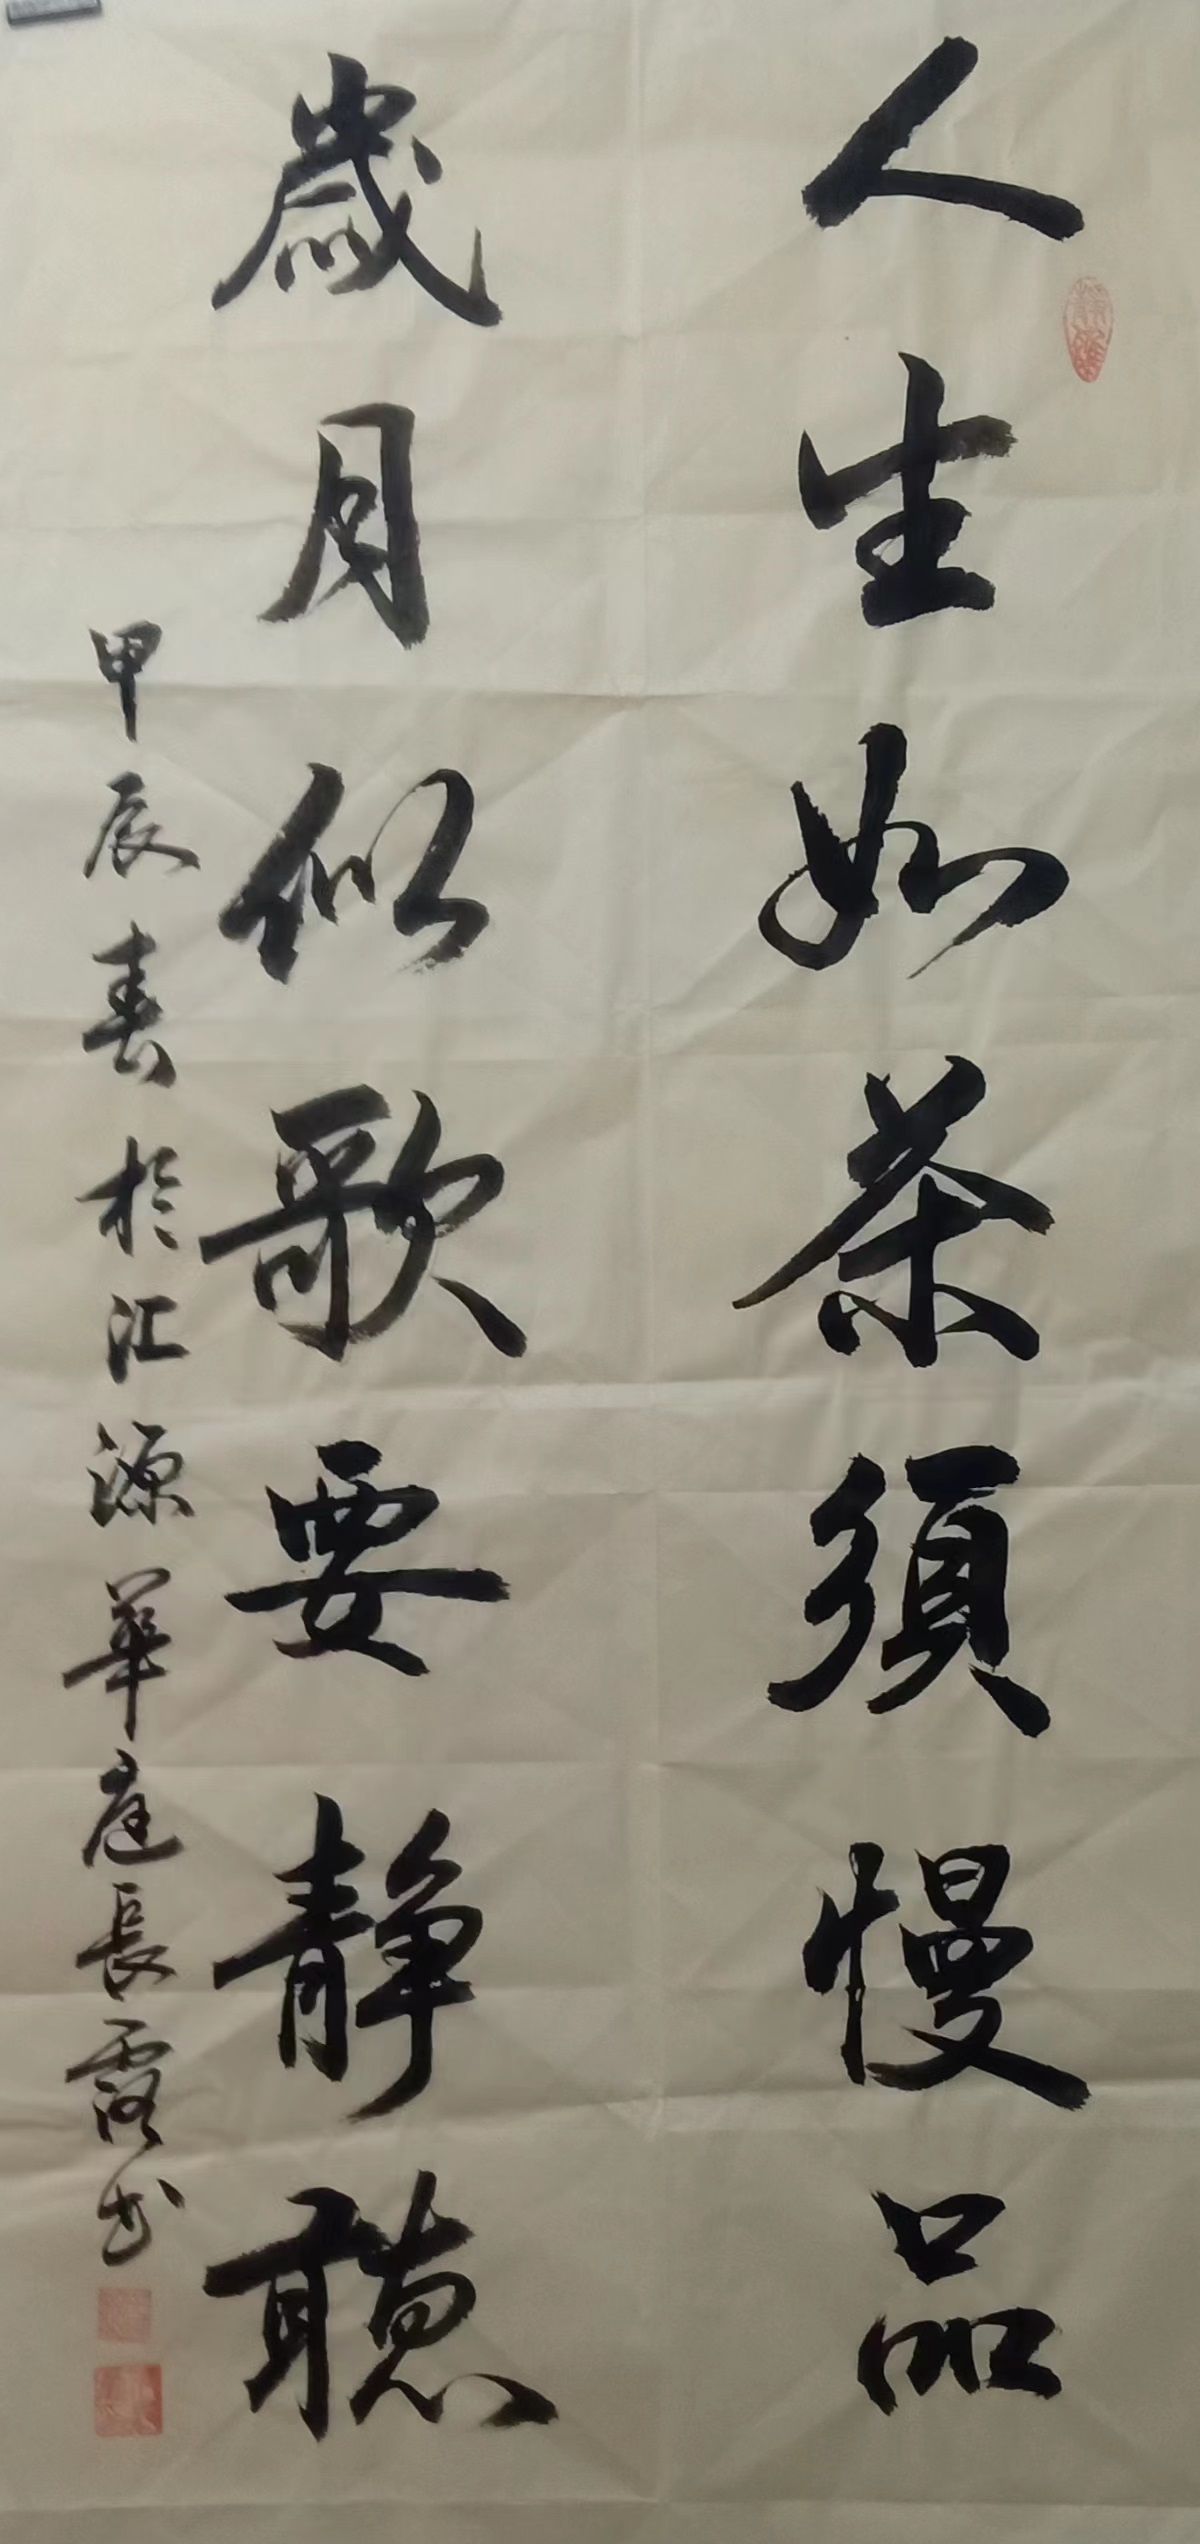 人生如茶須慢品
歲月似歌要靜聽
甲辰春於江源華庭長霞书